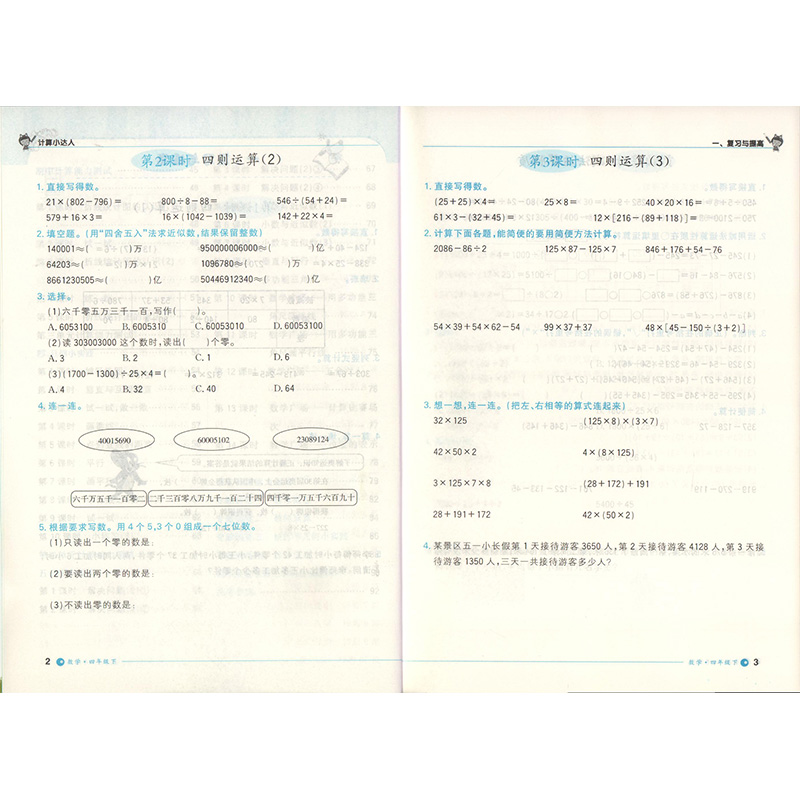 计算小达人
第2课时 四则运算(2)
1.直接写得数。
21×(802-796)= 800÷8-88= 546÷(54+24)=
579+16×3= 16×(1042-1039)= 142+22×4=
2.填空题。(用“四舍五入”法求近似数,结果保留整数)
140001≈( )万 950000006000≈( )亿
64203≈( )万 1096780≈( )万
8661230505≈( )亿 50446912340≈( )亿
3.选择。
(1)六千零五万三千一百,写作( )。
A. 6053100 B. 6005310 C. 60053010 D. 60053100
(2)读 303003000 这个数时,读出( )个零。
A. 3 B. 2 C. 1 D. 6
(3)(1700-1300)÷25×4=( )。
A. 4 B. 32 C. 40 D. 64
4.连一连。
40015690 60005102 23089124
六千万五千一百零二 二千三百零八万九千一百二十四 四千零一万五千六百九十
5.根据要求写数。用4个5,3个0组成一个七位数。
(1)只读出一个零的数是:
(2)要读出两个零的数是:
(3)不读出零的数是:
2 数学·四年级下
一、复习与提高
第3课时 四则运算(3)
1.直接写得数。
(25+25)×4= 25×8= 40×20×16=
61×3-(32+45)= 12×[216-(89+118)]=
2.计算下面各题,能简便的要用简便方法计算。
2086-86÷2 125×87-125×7 846+176+54-76
54×39+54×62-54 99×37+37 48×[45-150÷(3+2)]
3.想一想,连一连。(把左、右相等的算式连起来)
32×125 (125×8)×(3×7)
42×50×2 4×(8×125)
3×125×7×8 (28+172)+191
28+191+172 42×(50×2)
4.某景区五一小长假第1天接待游客3650人,第2天接待游客4128人,第3天接
待游客1350人,三天一共接待游客多少人?
数学·四年级下 3